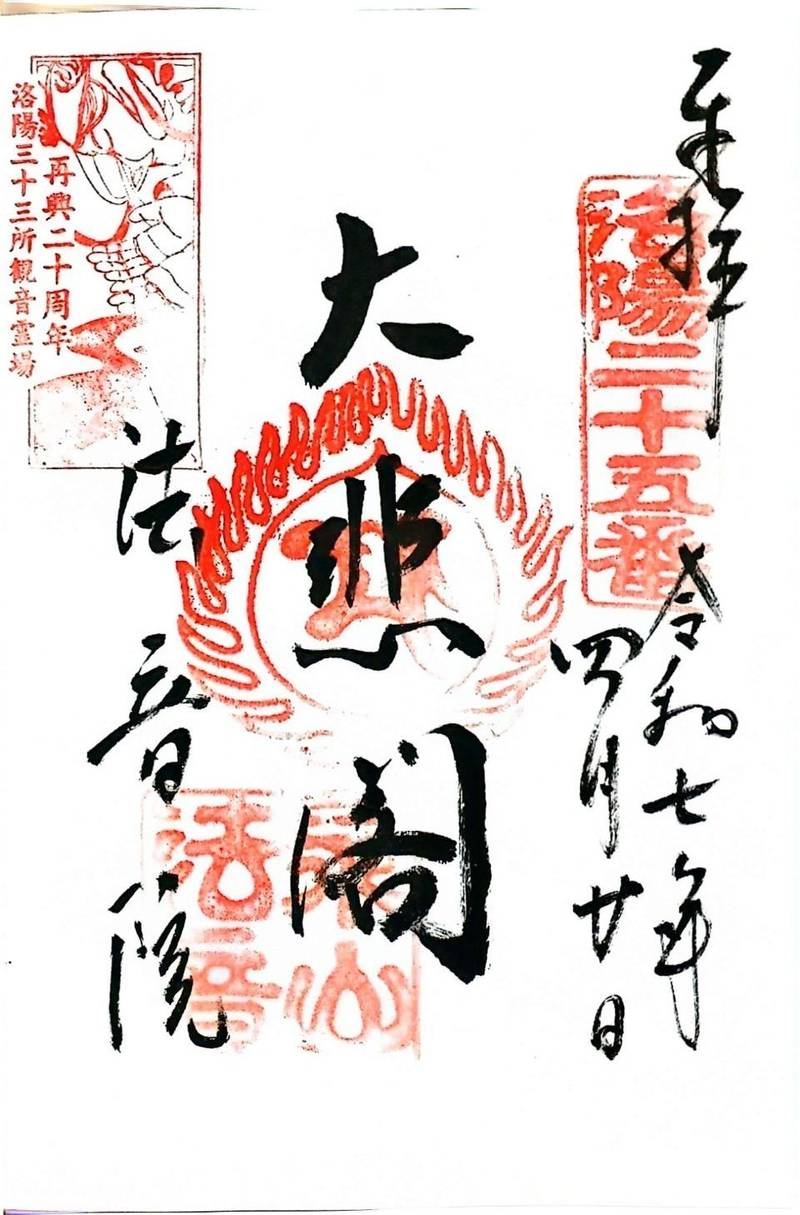 奉拝
洛陽二十五番
令和七年
四月廿日
大悲閣
泉山
法音
法音院
再興二十周年
洛陽三十三所觀音霊場